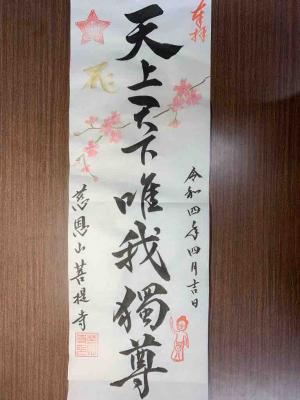 奉拝
令和四年四月吉日
天上天下唯我獨尊
慈恩山菩提寺